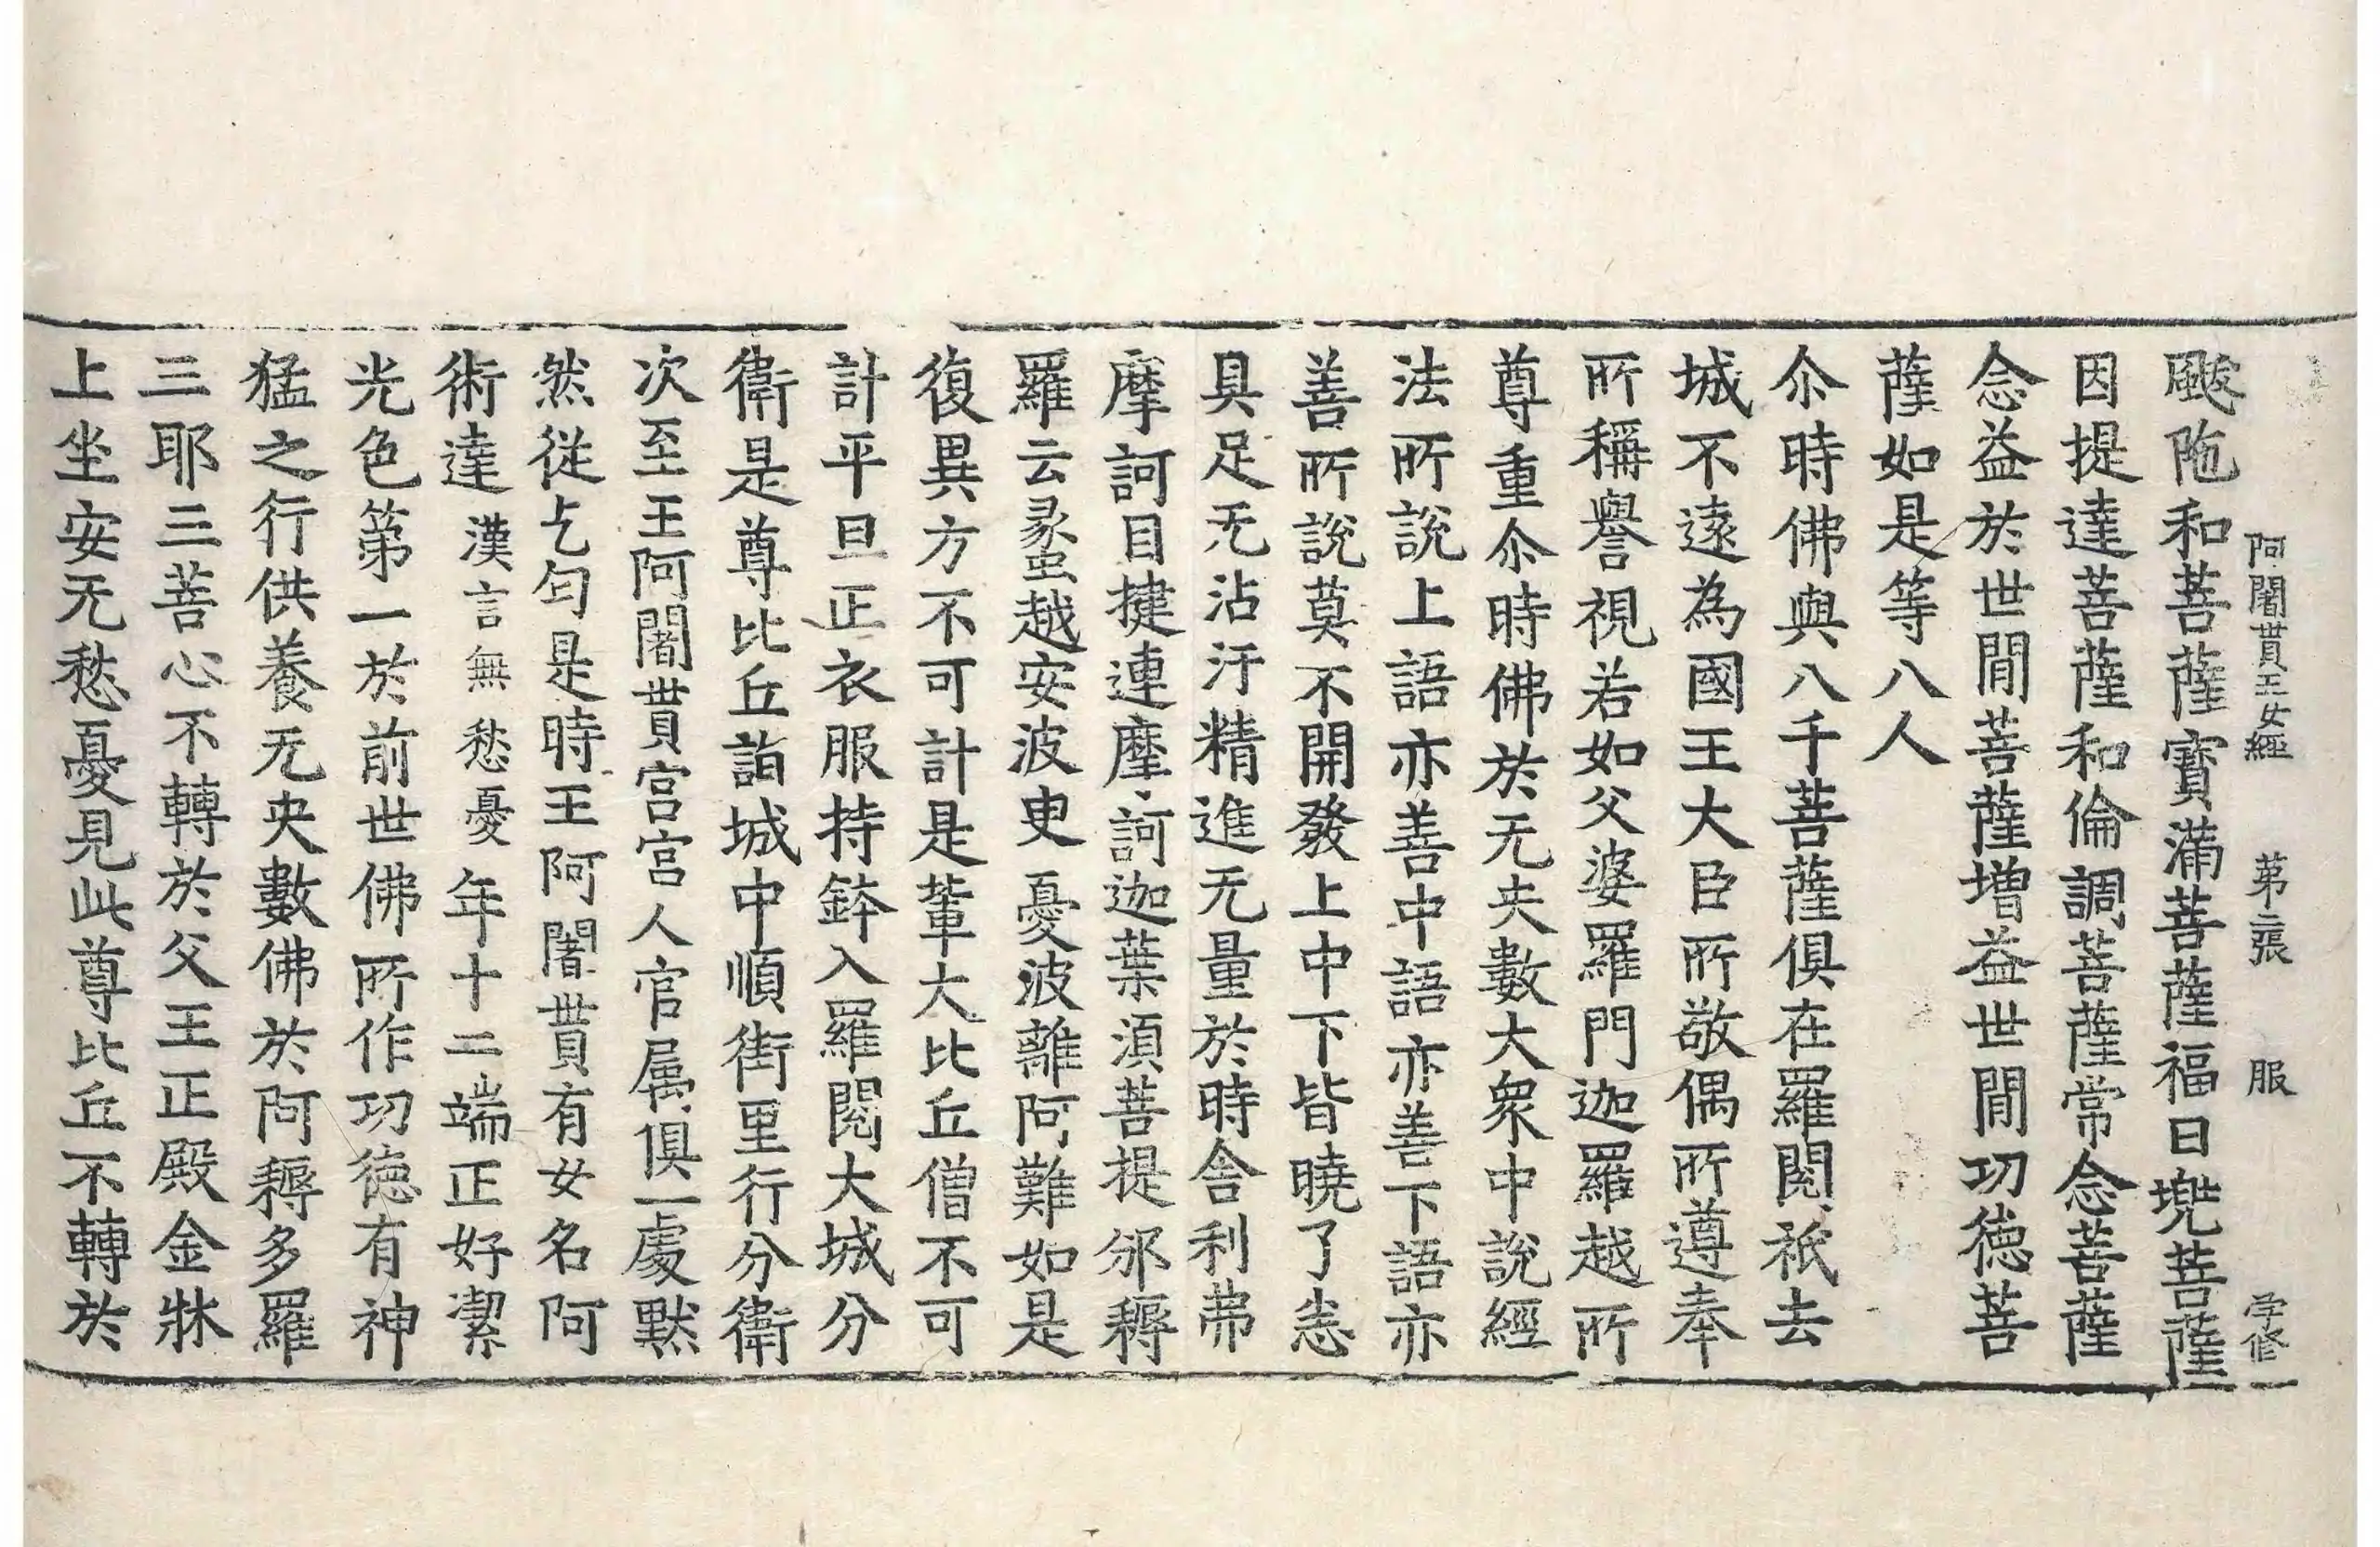 阿闍貰王女經 苐二張 服 学修
颰陁和菩薩寶滿菩薩福日兠菩薩
因提達菩薩和倫調菩薩常念菩薩
念益於世閒菩薩増益世閒功徳菩
薩如是等八人
尒時佛與八千菩薩俱在羅閱祇去
城不遠為國王大臣所敬偶所遵奉
所稱譽視若如父婆羅門迦羅越所
尊重尒時佛於无央數大衆中說經
法所說上語亦善中語亦善下語亦
善所說莫不開發上中下皆曉了恙
具足无沾汙精進无量於時舍利弗
摩訶目揵連摩訶迦葉須菩提邠耨
羅云彖虫越安波㕝憂波離阿難如是
復異方不可計是輩大比丘僧不可
計平旦正衣服持鉢入羅閱大城分
衛是尊比丘詣城中順街里行分衛
次至王阿闍貰宮宮人官屬俱一處默
然從乞匃是時王阿闍貰有女名阿
術達漢言無愁憂年十二端正好潔
光色第一於前世佛所作功徳有神
猛之行供養无央數佛於阿耨多羅
三耶三菩心不轉於父王正殿金牀
上坐安无愁憂見此尊比丘不轉於